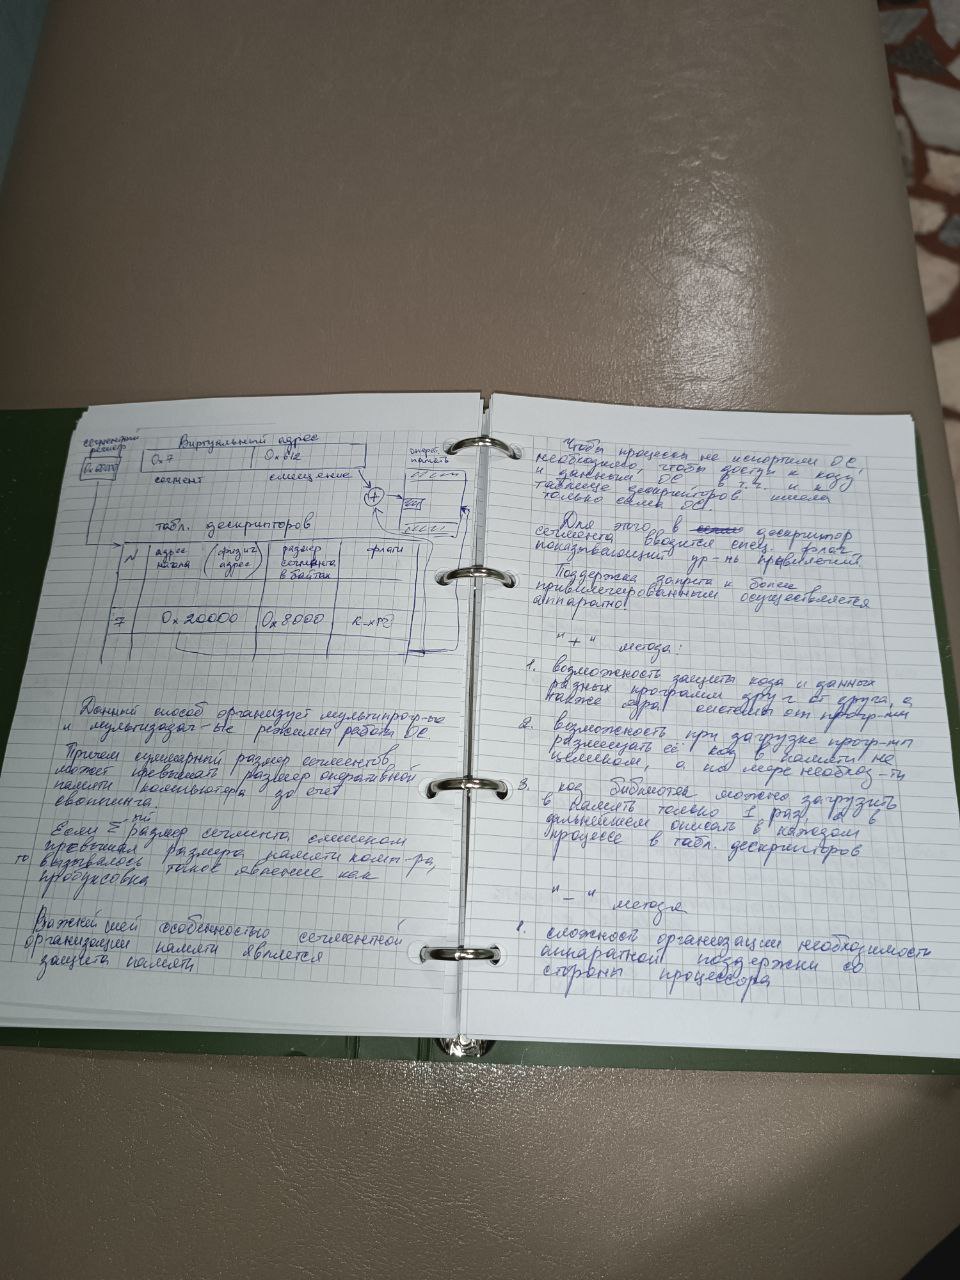 сегментный
регистр
Виртуальный адрес
0x7
0x612
операт.
память
сегмент
смещение
табл. дескрипторов
N
адрес
начала
(физич.
адрес)
размер
сегмента
в байтах
флаги
7
0x20000
0x8000
Данный способ организует мультипрогр-ые
и мультизадач-ые режимы работы ОС.
Причем суммарный размер сегментов,
может превышать размер оперативной
памяти компьютера за счет
своппинга.
Если Σ-ный размер сегмента слишком
превышал размера памяти комп-ра,
то вызывалось такое явление как
пробуксовка
Важнейшей особенностью сегментной
организации памяти является
защита памяти
Чтобы процессы не испортили ОС,
необходимо, чтобы доступ к коду
и данным ОС в т.ч. и к
таблице дескрипторов имела
только сама ОС.
Для этого в дескриптор
сегмента вводится спец. флаг
показывающий ур-нь привилегий
Поддержка запрета к более
привилегированным осуществляется
аппаратно
"+" метода:
1. возможность защиты кода и данных
разных программ друг от друга, а
также ядра системы от прогр-мы
2. возможность при загрузке прогр-мы
размещать её код в памяти не
целиком, а по мере необход-ти
3. код библиотек можно загрузить
в память только 1 раз, а в
дальнейшем описать в каждом
процессе в табл. дескрипторов
"–" метода
1. сложность организации необходимость
аппаратной поддержки со
стороны процессора